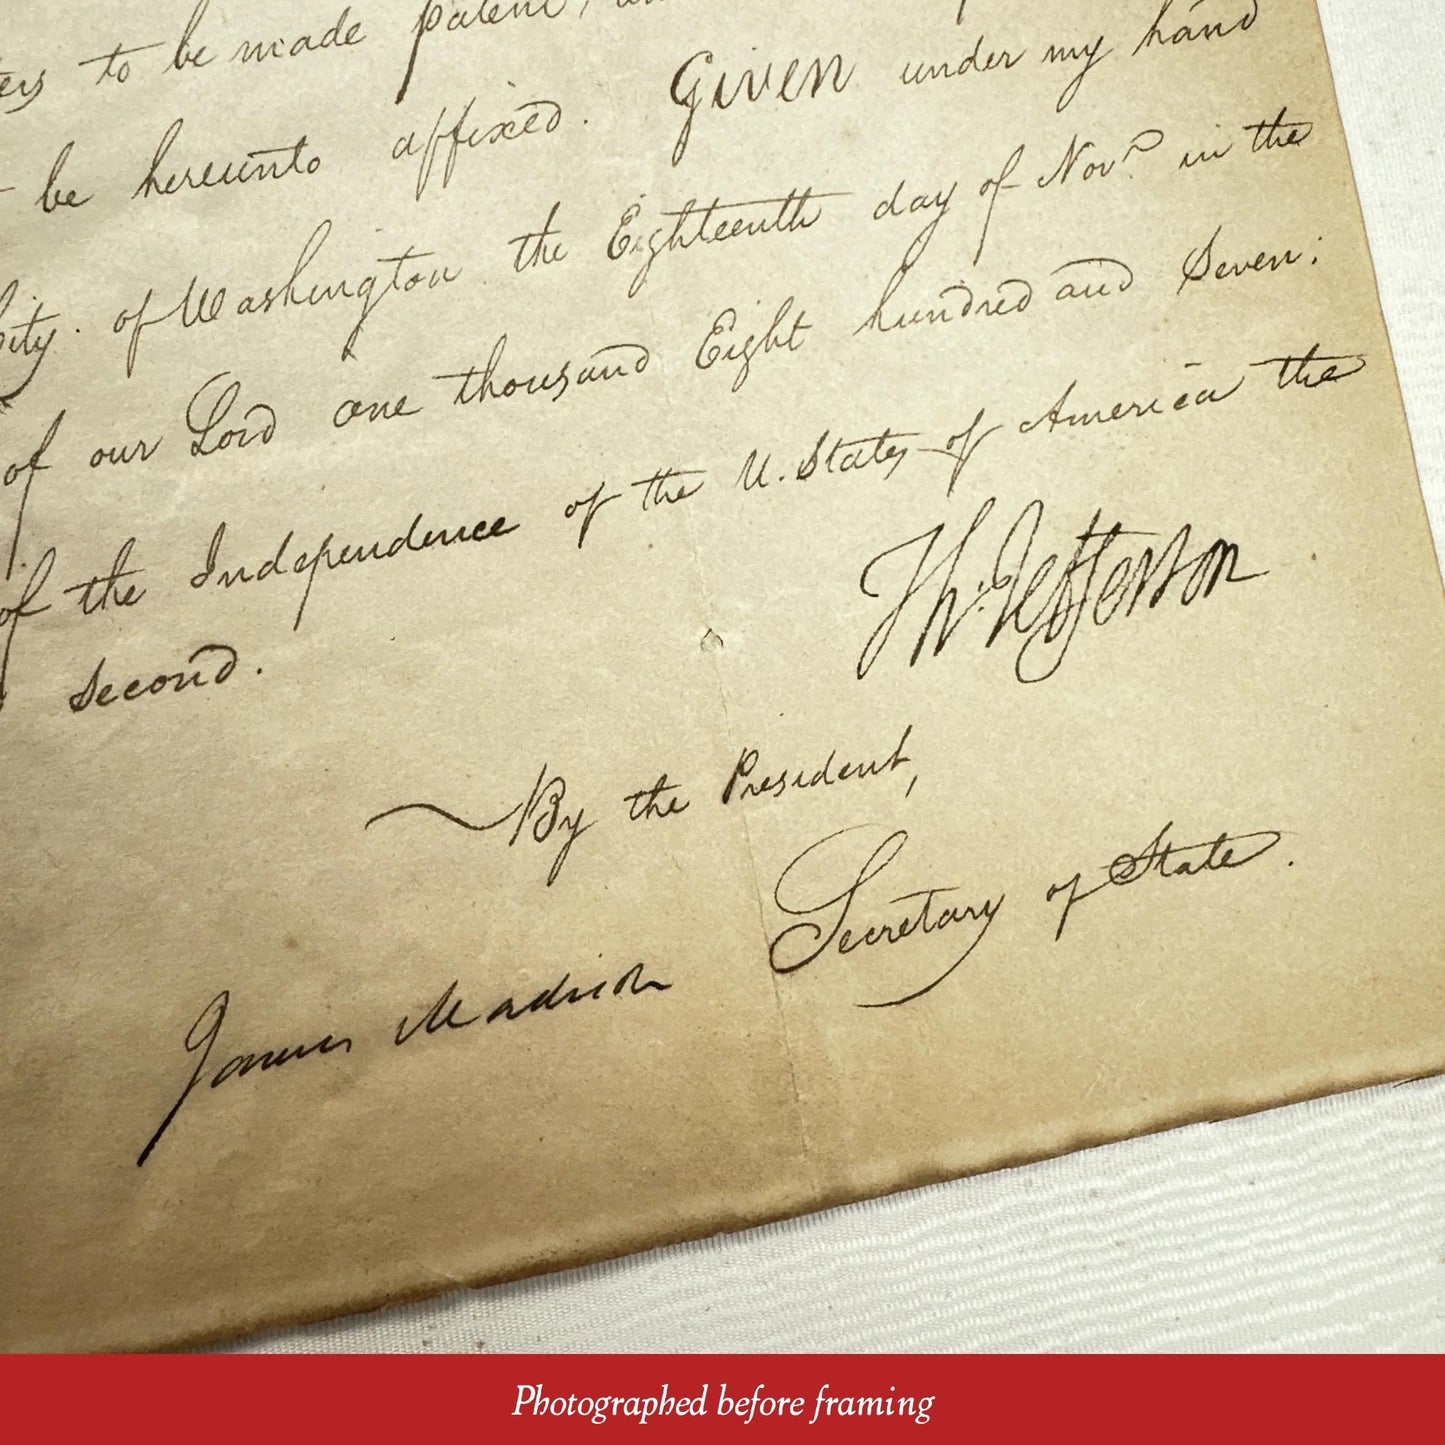 to be made patent,
be hereunto affixed. Given under my hand
City of Washington the Eighteenth day of Novr. in the
of our Lord one thousand Eight hundred and Seven:
of the Independence of the U. States of America the
Second.
Th: Jefferson
By the President,
James Madison Secretary of State.
Photographed before framing